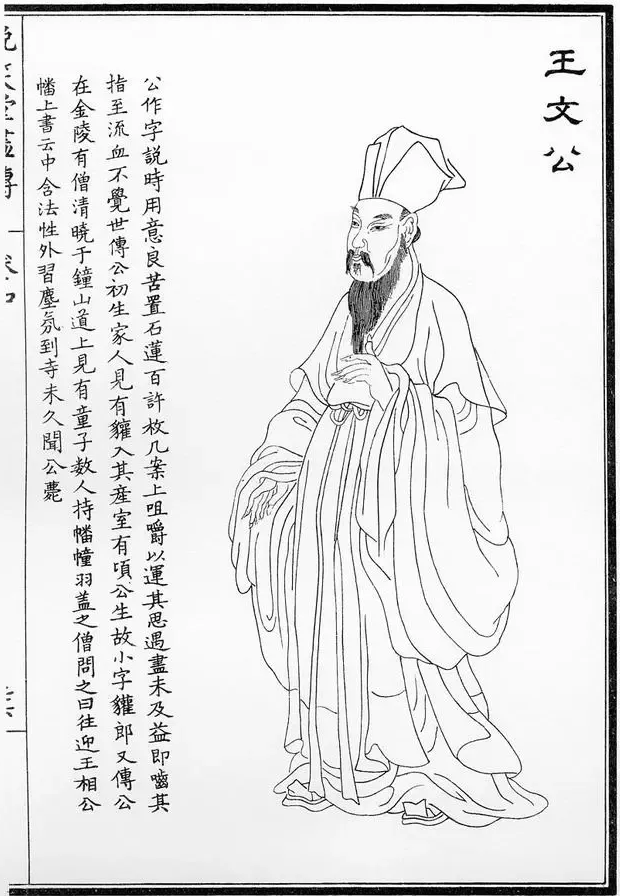 王文公
公作字說時用意良苦置石蓮百許枚几案上咀嚼以運其思遇盡未及益即嚙其
指至流血不覺世傳公初生家人見有貛入其產室有頃公生故小字貛郎又傳公
在金陵有僧清曉于鐘山道上見有童子数人持幡幢羽盖之僧問之曰往迎王相公
幡上書云中含法性外習塵氛到寺未久聞公薨